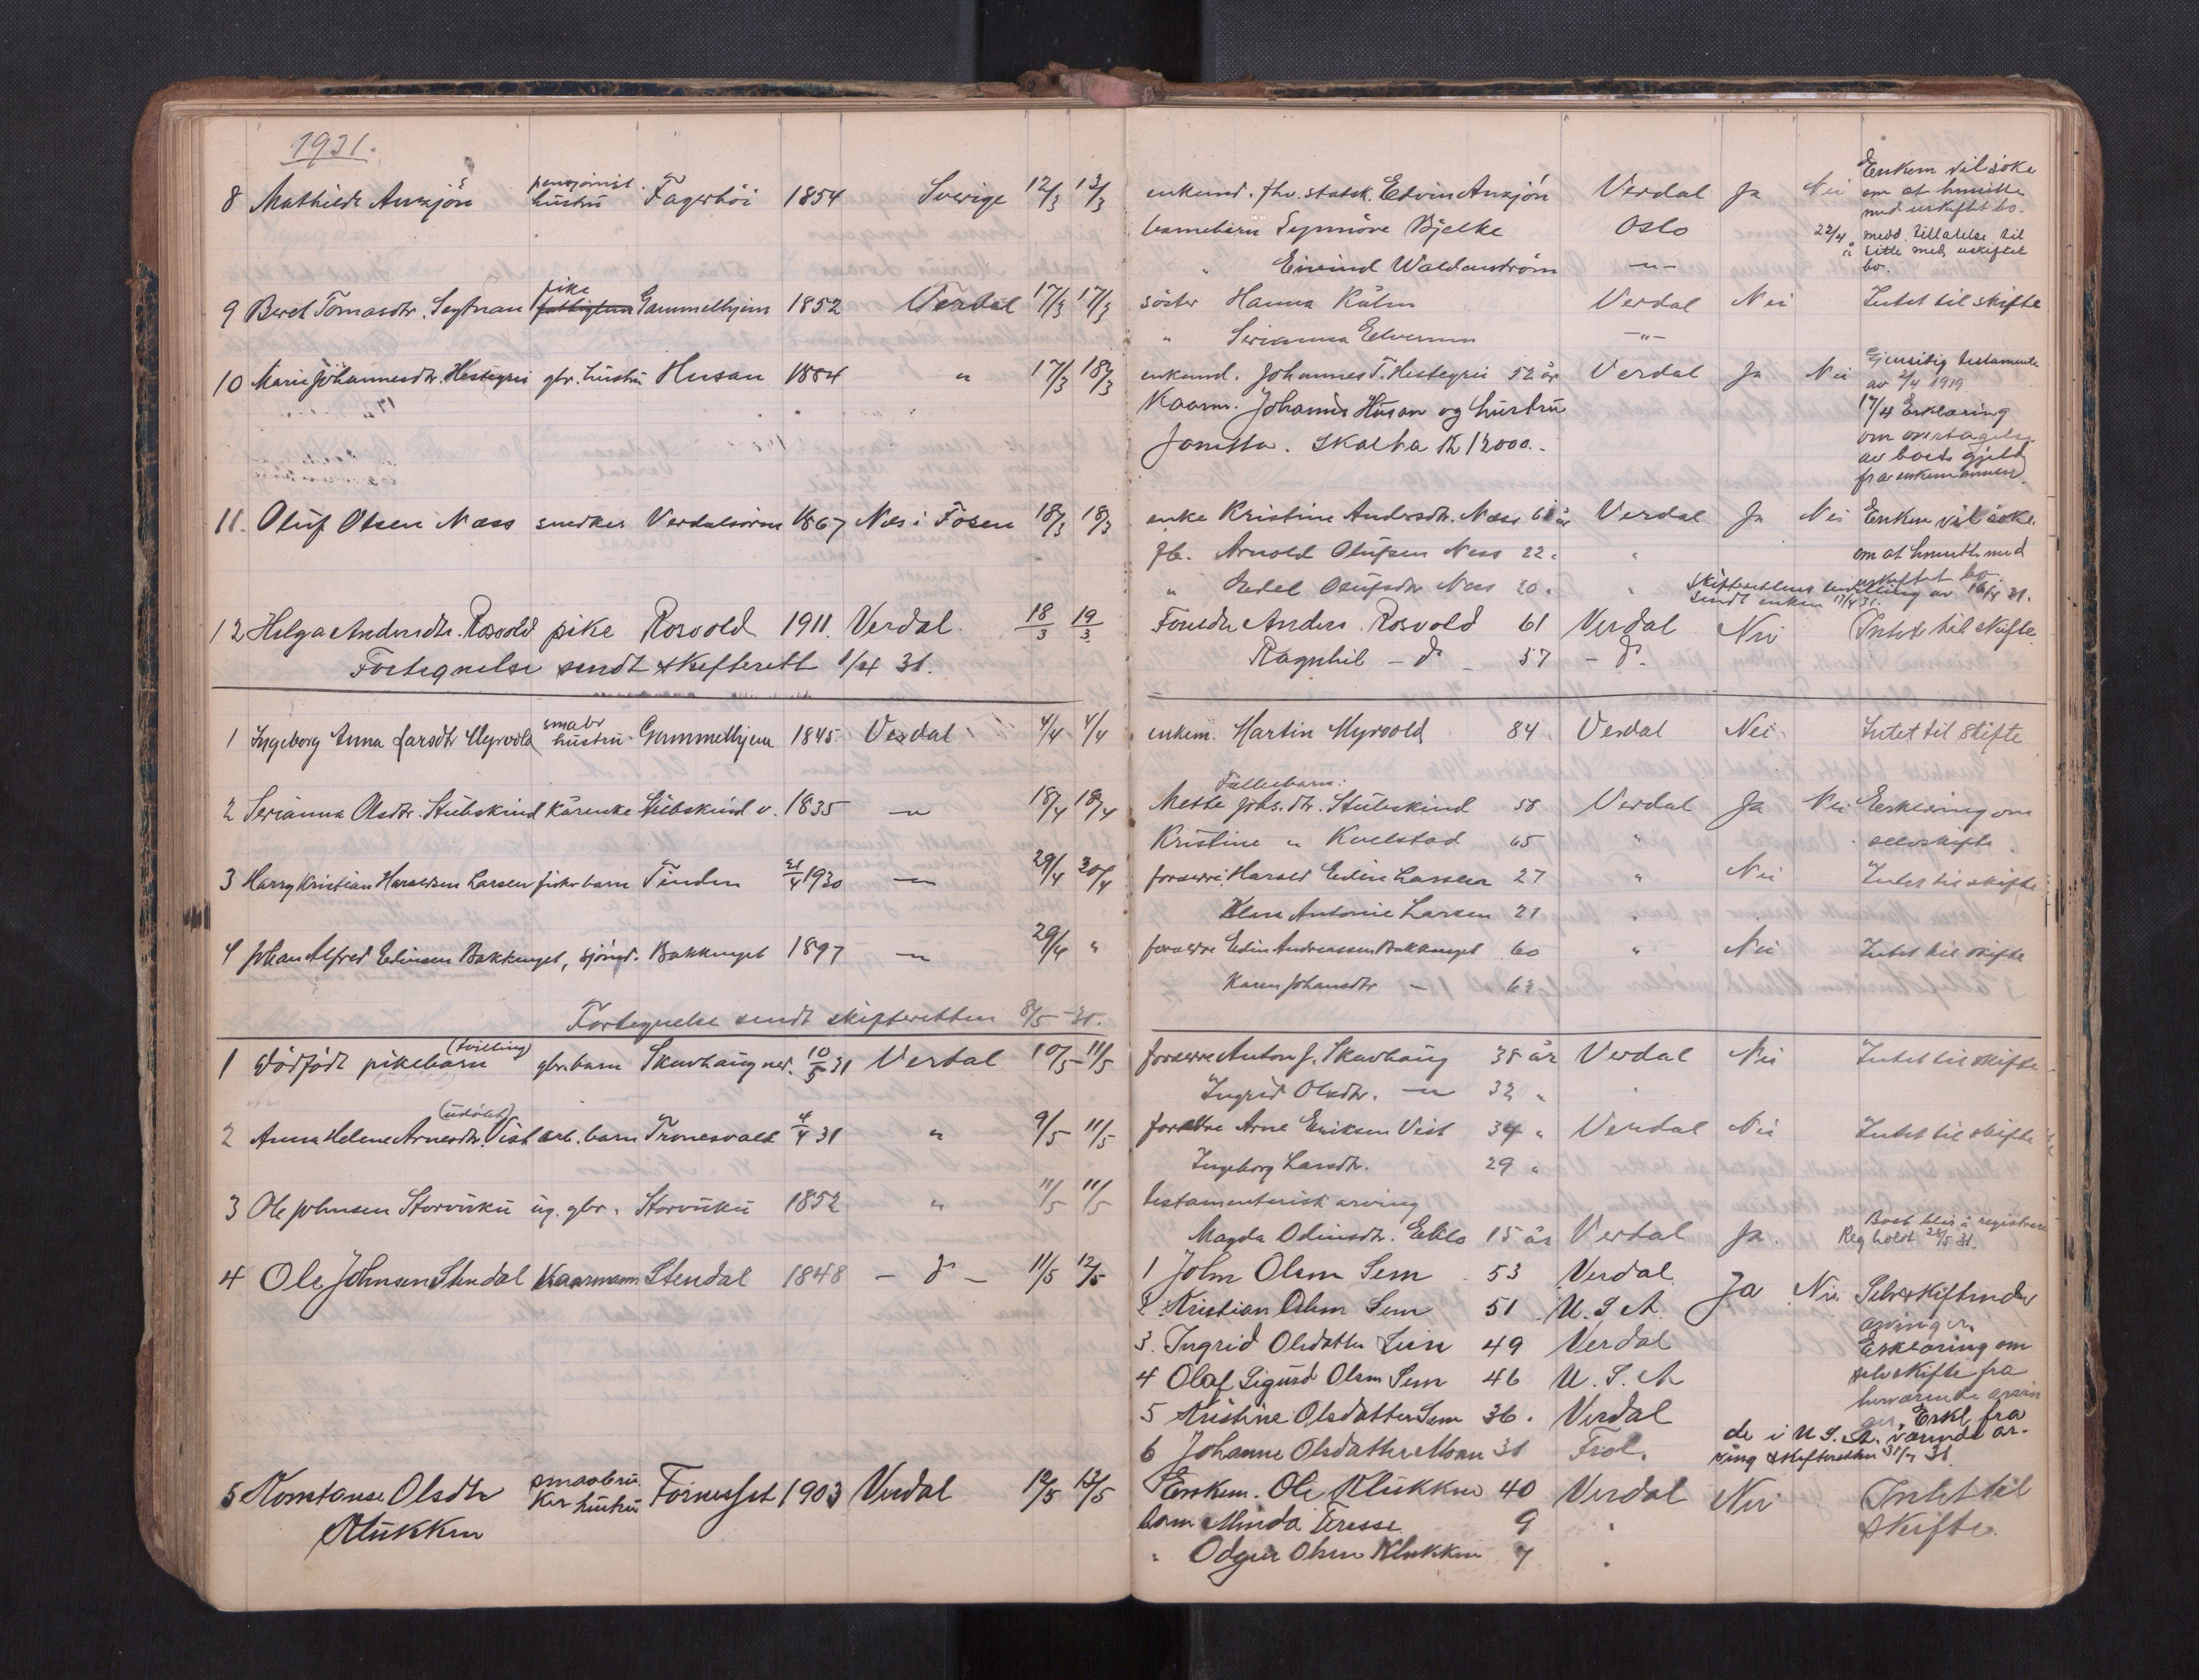 1931.
8 Mathilde Anxjön pensjonist hustru Fagerhöi 1854 Sverige 12/3 13/3 enkemd. fhv. statsk. Edvin Anxjön Verdal Ja Nei Enkem vil söke
om at hensitte
med uskiftet bo.
barnebarn Synnöve Bjelke Oslo 22/4 medd. tillatelse til
å sitte med uskiftet
" Eivind Waldenström -"- bo.
9 Beret Tomasdtr. pike Gammelhjem 1852 Verdal 17/3 17/3 söster Hanna Kålen Verdal Nei Intet til skifte
" Serianna Elverum -"-
10 Marie Johannesdtr. Hestegrei gbr. hustru Husan 1884 " 17/3 18/3 enkemd. Johannes T. Hestegrei 52 år Verdal Ja Nei Gjensidig testamente
av 2/4 1919
Kaarm. Johannis Husan og hustru 17/4 Erklæring
om overtagelse
Jonetta. Skatta Kr 12000.- av boets gjeld
fra enkemannen.
11. Oluf Olsen Næss snedker Verdalsören 1867 Næs i Fosen 18/3 18/3 enke Kristine Andersdtr. Næss 61 år Verdal Ja Nei Enken vil söke
fb. Arnold Olufsen Næss 22 " " om at hensitte med
uskiftet bo.
" Edel Olufsdtr Næss 20 " " Skifterettens bevilling av 16/4 31.
sendt enken 17/4 31.
12 Helga Andersdtr. Rosvold pike Rosvold 1911 Verdal. 18/3 19/3 Foreldre Anders Rosvold 61 Verdal Nei Intet til skifte
Fortegnelse sendt skifterett 1/4 31. Ragnhil - d - 57 - d -
1 Ingeborg Anna Larsdtr Myrvold smabr hustru Gammelhjem 1845 Verdal 4/4 4/4 enkem. Martin Myrvold 84 Verdal Nei Intet til skifte
Fællesbarn:
2 Serianna Olsdtr. Stubskind kårenke Stubskind v. 1835 -"- 18/4 18/4 Mette Johs.dtr. Stubskind 58 Verdal Ja Nei Erklæring om
Kristine " Kvelstad 65 " selvskifte
3 Harry Kristian Haraldsen Larsen fiskerbarn Tinden 21/4 1930 -"- 29/4 30/4 forældre Harald Edin Larsen 27 " Nei Intet til skifte
Klara Antonie Larsen 21 "
4 Johan Alfred Edinsen Bakkenget, sjömd. Bakkenget 1897 -"- 29/4 " forældre Edin Andreassen Bakkenget 60 " Nei Intet til skifte
Karen Johansdtr - 62
Fortegnelse sendt skifteretten 8/5 -31.
1 Dödfödt pikebarn (tvilling) gbr. barn Skavhaug ned. 10/5 31 Verdal 10/5 11/5 forældre Anton J. Skavhaug 38 år Verdal Nei Intet til skifte
Ingrid Olsdtr. -"- 32 "
2 Anna Helene Arnesdtr. (udöbt) Vist arb. barn Tronesvald 4/4 31 " 9/5 11/5 forældre Arne Eriksen Vist 34 " Verdal Nei Intet til skifte
Ingeborg Larsdtr. 29 "
3 Ole Johnsen Storvuku ug. gbr. Storvuku 1852 " 11/5 11/5 testamentarisk arving
Magda Odinsdtr. Eklo 15 år Verdal Ja. Boet blir å registrere
Reg holdt 28/5 31.
4 Ole Johnsen Stendal Kaarmann Stendal 1848 - d - 11/5 12/5 1 John Olsen Sem 53 Verdal Ja Nei Selvskiftende
2. Kristian Olsen Sem 51 U. S. A. arvinger.
3. Ingrid Olsdatter Lein 49 Verdal Erklæring om
4 Olaf Sigurd Olsen Sem 46 U. S. A selvskifte fra
herværende arvin
5 Kristine Olsdatter Sem 36. Verdal ger. Erkl. fra
6 Johanne Olsdatter Moan 31 Frol. de i U. S. A. værende ar-
ving skifteretten 31/7 31.
5 Konstanse Olsdtr smaabru ker hustru Fornesset 1903 Verdal 12/5 13/5 Enkem. Ole Klukken 40 Verdal Nei Intet til
Klukken barn Minda Teresse 9 " skifte.
" Odgeir Olsen Klukken 7 "